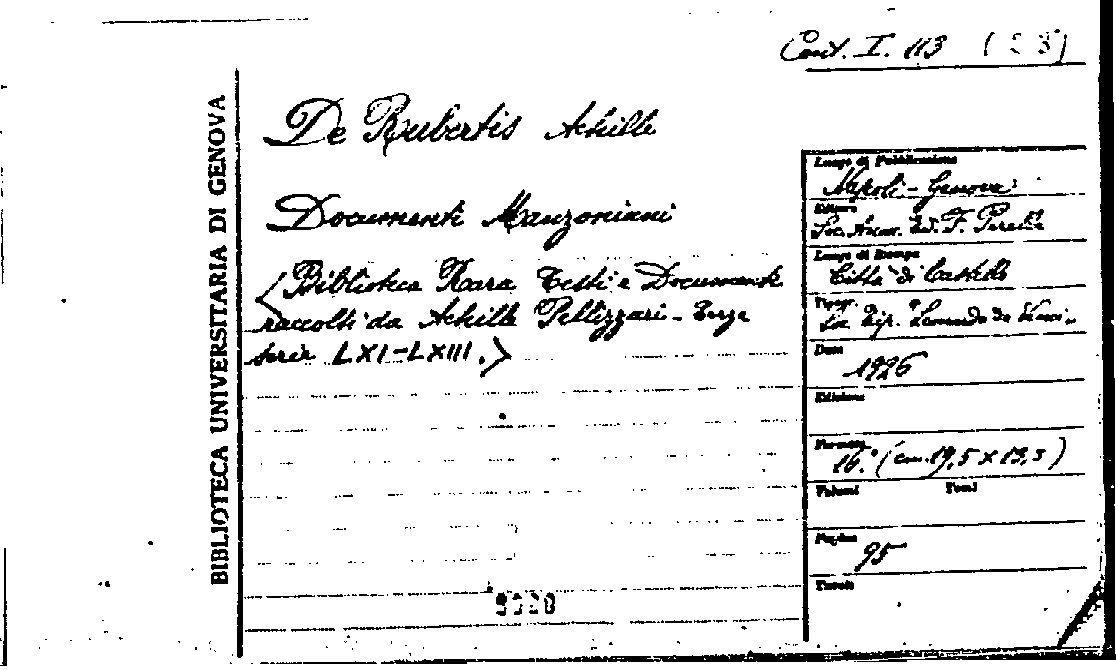 Cont. I. 113
BIBLIOTECA UNIVERSITARIA DI GENOVA
De Rubertis Achille
Documenti Manzoniani
(Biblioteca Rara Testi e Documenti
raccolti da Achille Pellizzari - Terza
serie LXI-LXIII.)
Luogo di Pubblicazione
Napoli - Genova
Editore
Soc. Anon. Ed. F. Perrella
Luogo di Stampa
Città di Castello
Tipogr.
Soc. Tip. Leonardo da Vinci
Data
1926
Edizione
Formato
16.° (cm. 19,5 x 13,5)
Volumi Tomi
Pagine
95
Tavole